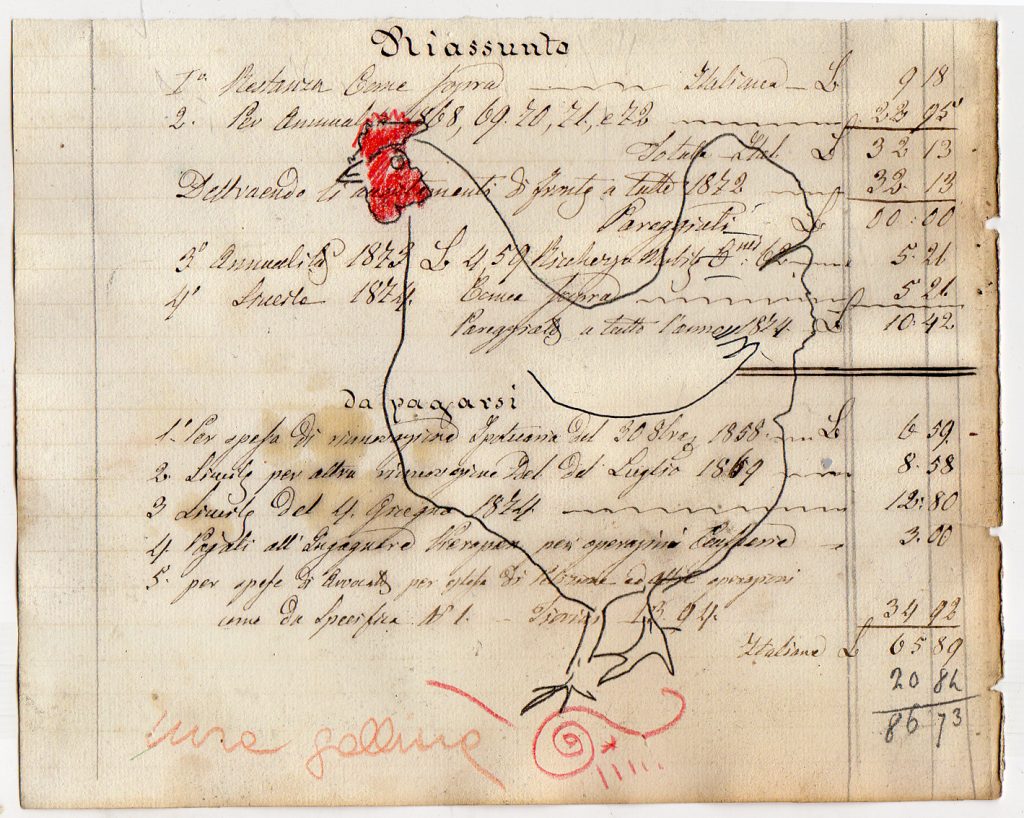 Riassunto
1º Restanza Come sopra Italiane L 9 18
2. Per Annualità 1868, 69. 70, 71, e 72 22 95
Totale Ital L 32 13
Detraendo li a menti di fronte a tutto 1872 32 13
Pareggiati L 00:00
3º Annualità 1873 L 4,59 Ricchezza Mobile 62 5.21
4º 1874. Come sopra 5 21
Pareggiato a tutto l'anno 1874. L 10.42
da pagarsi
1.º Per spesa di rinnovazione Ipotecaria del 30 8bre 1858. L 6 59
2. per altra rinnovazione del Luglio 1869 8.58
3 del 4. Giugno 1874. 12.80
4. Pagati all' per operazioni 3.00
5. per spese di Avvocato per ed altre operazioni
come da Specifica Nº 1. 34 92
Italiane L 65 89
20 84
86 73
una gallina